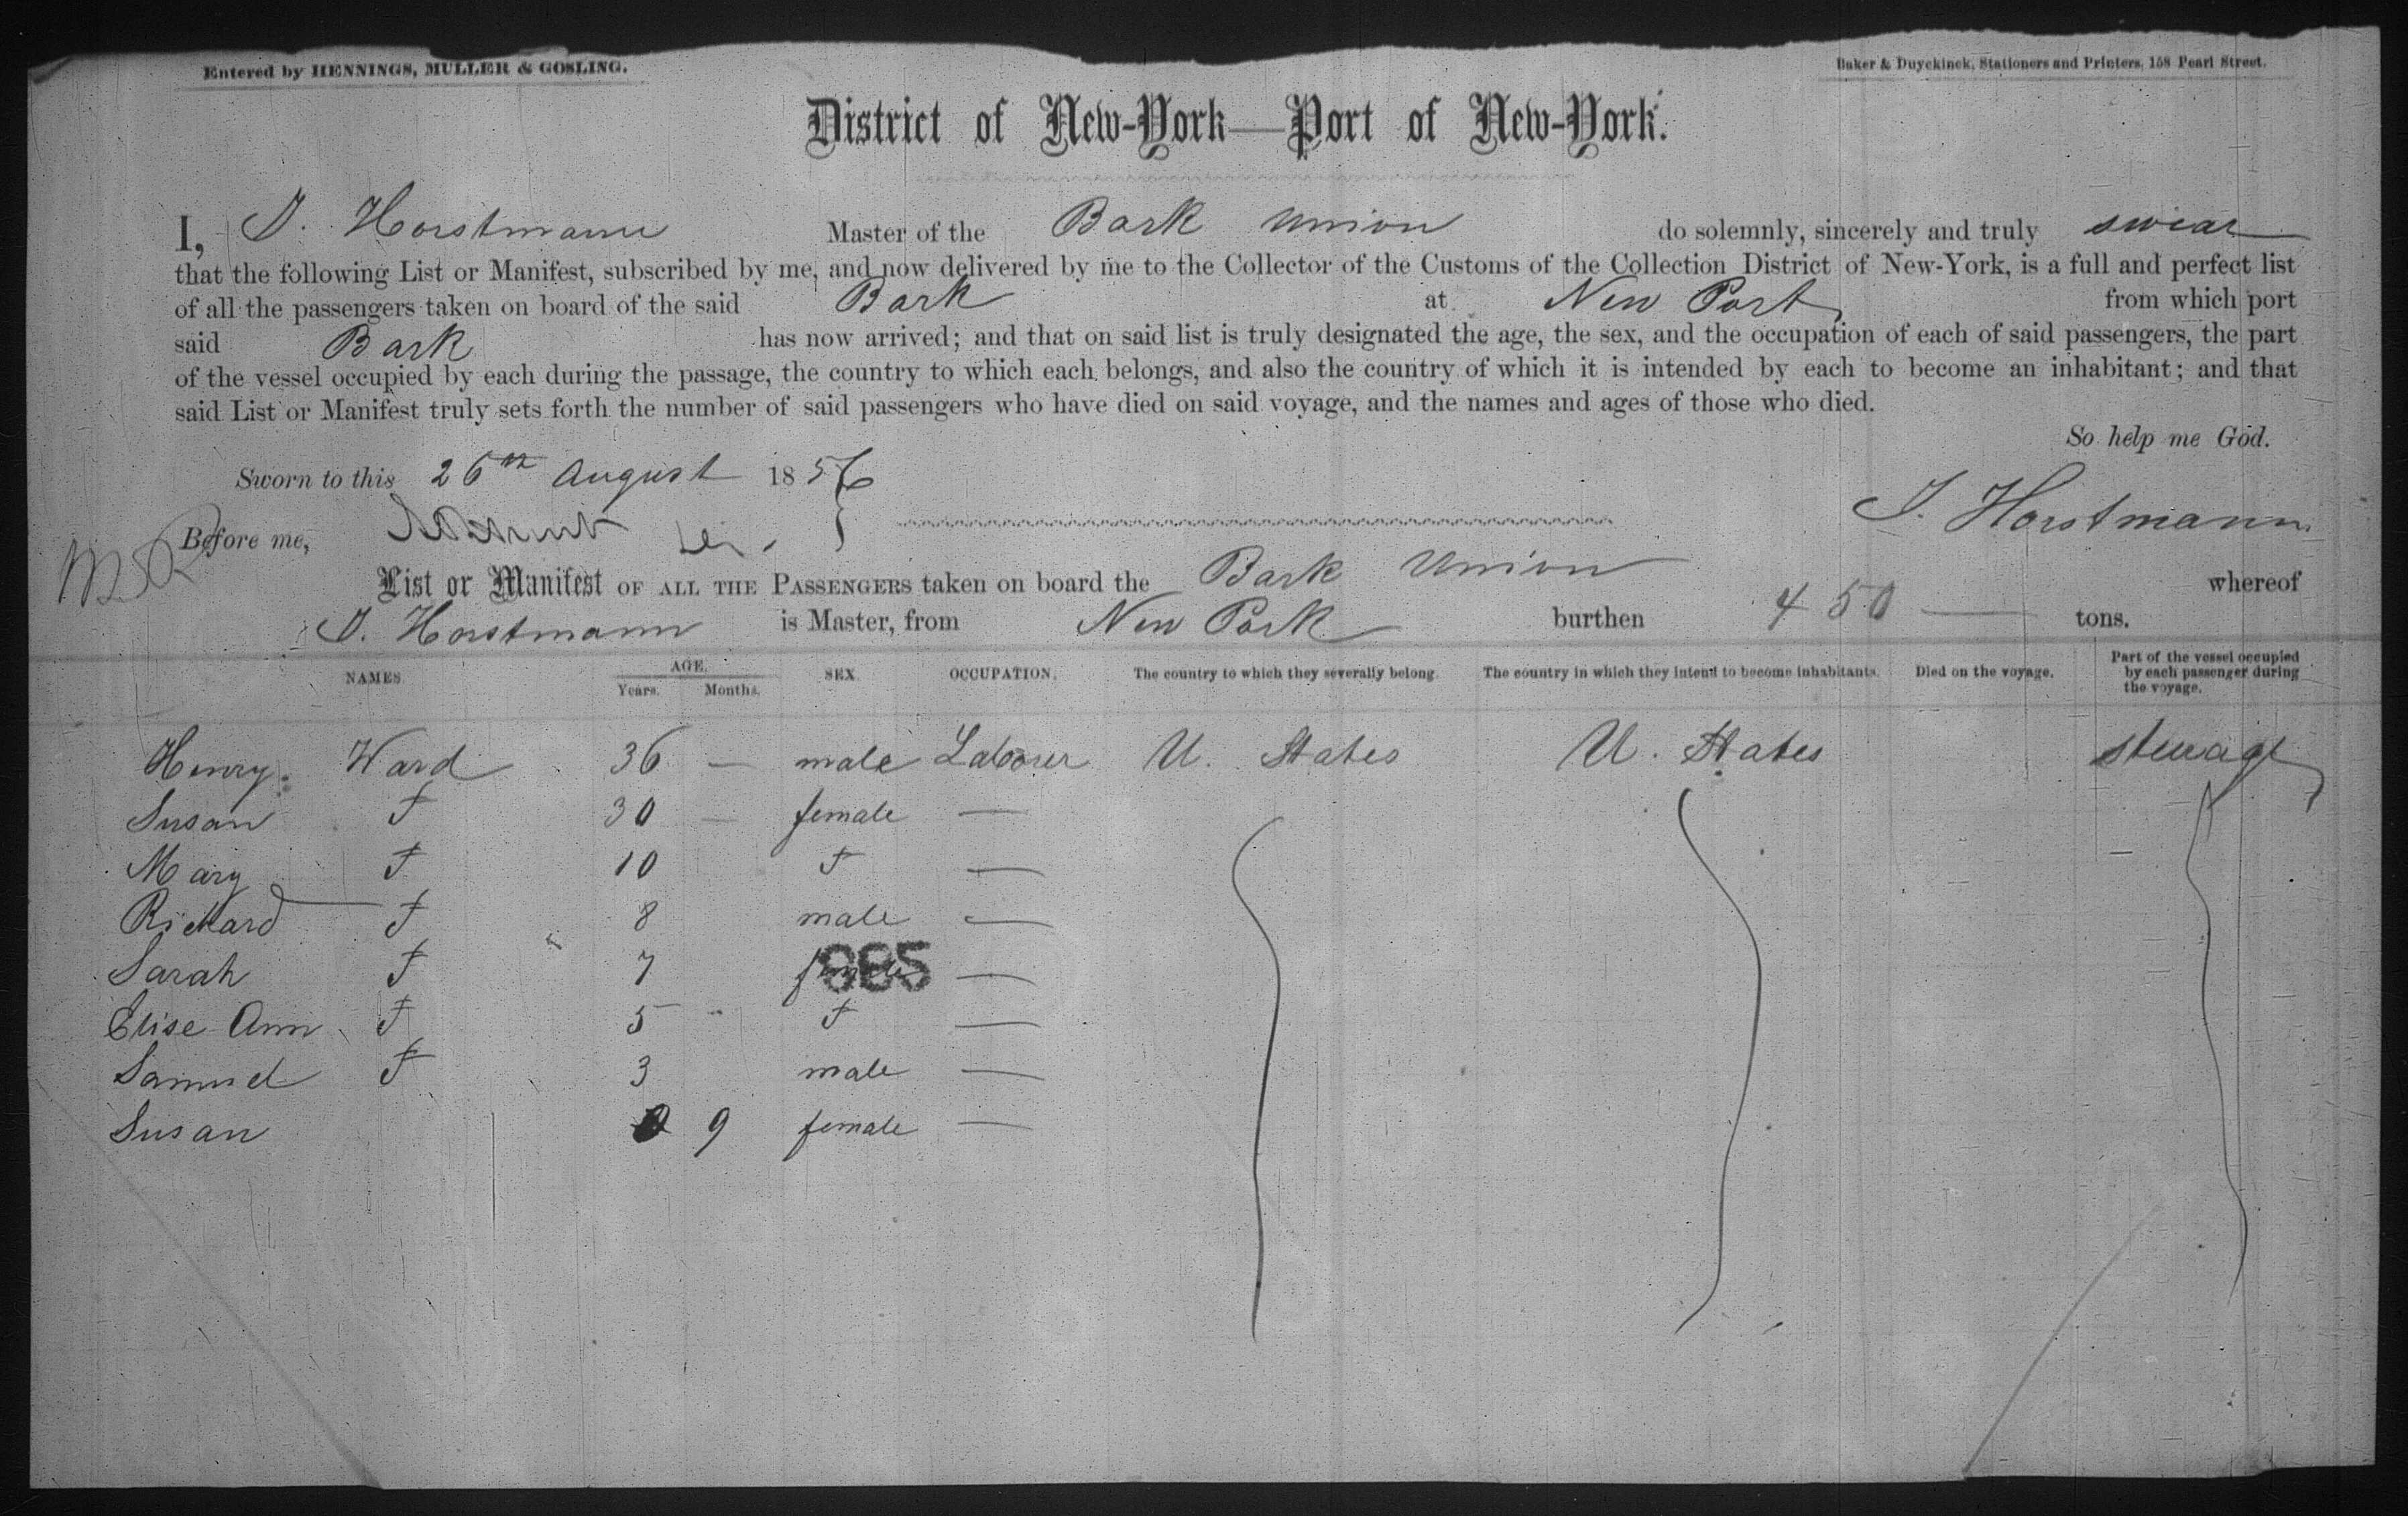 Entered by HENNINGS, MULLER & GOSLING.
Baker & Duyckinck, Stationers and Printers, 158 Pearl Street.
District of New-York—Port of New-York.
I, J. Horstmann Master of the Bark Union do solemnly, sincerely and truly swear
that the following List or Manifest, subscribed by me, and now delivered by me to the Collector of the Customs of the Collection District of New-York, is a full and perfect list
of all the passengers taken on board of the said Bark at New Port from which port
said Bark has now arrived; and that on said list is truly designated the age, the sex, and the occupation of each of said passengers, the part
of the vessel occupied by each during the passage, the country to which each belongs, and also the country of which it is intended by each to become an inhabitant; and that
said List or Manifest truly sets forth the number of said passengers who have died on said voyage, and the names and ages of those who died.
So help me God.
Sworn to this 26th August 1856
J. Horstmann
Before me,
List or Manifest OF ALL THE PASSENGERS taken on board the Bark Union whereof
J. Horstmann is Master, from New Port burthen 450 — tons.
NAMES. AGE. Years. Months. SEX. OCCUPATION. The country to which they severally belong. The country in which they intend to become inhabitants. Died on the voyage. Part of the vessel occupied by each passenger during the voyage.
Henry Ward 36 — male Laborer U. States U. States steerage
Susan 30 — female —
Mary 10 —
Richard 8 male —
Sarah 7 female —
985
Elise Ann 5 —
Samuel 3 male —
Susan 0 9 female —